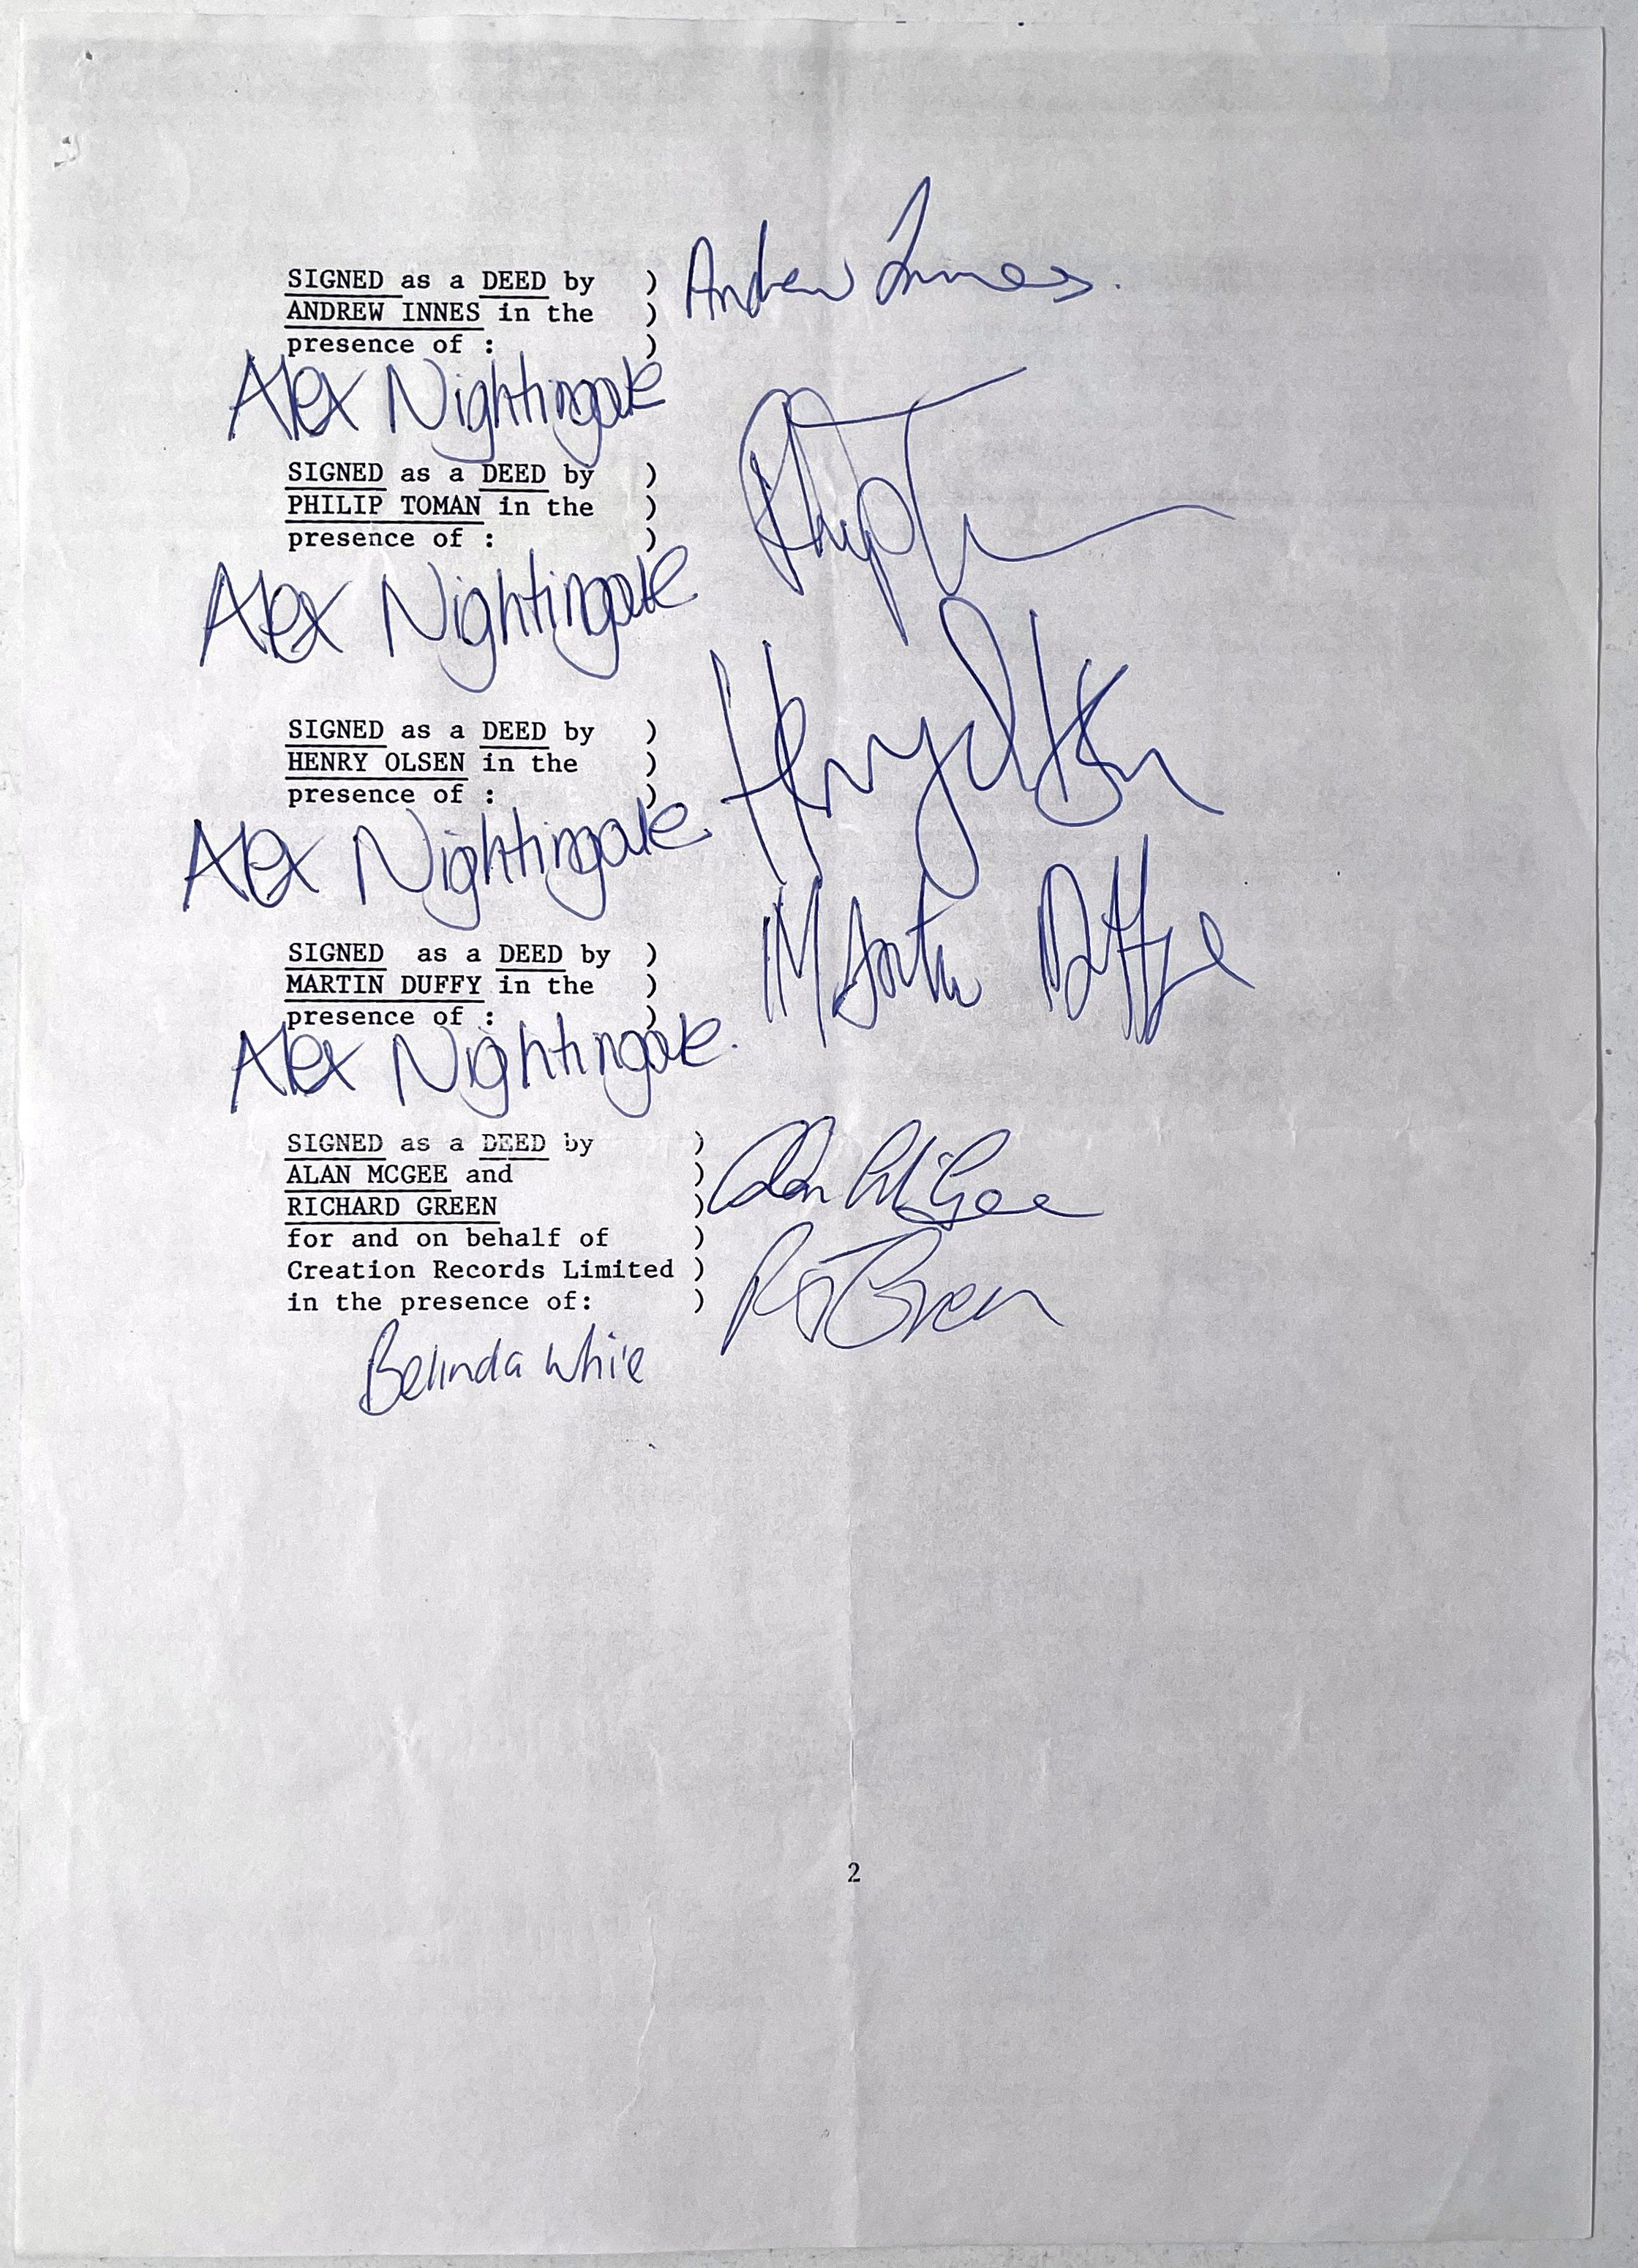 SIGNED as a DEED by ) Andrew Innes.
ANDREW INNES in the )
presence of : )
Alex Nightingale
SIGNED as a DEED by )
PHILIP TOMAN in the ) Philip T
presence of : )
Alex Nightingale
SIGNED as a DEED by )
HENRY OLSEN in the ) Henry Olsen
presence of : )
Alex Nightingale
SIGNED as a DEED by )
MARTIN DUFFY in the ) Martin Duffy
presence of : )
Alex Nightingale.
SIGNED as a DEED by )
ALAN MCGEE and ) Alan McGee
RICHARD GREEN )
for and on behalf of )
Creation Records Limited ) Green
in the presence of: )
Belinda White
2